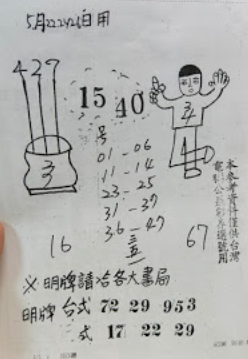 5月22.24.26日用
427
15 40
3
3
号
01-06
11-14
23-25
31-37
36-47
16
67
本參考資料僅供台灣
電彩公益彩券選號用
※明牌請洽各大書局
明牌 台式 72 29 953
二式 17 22 29